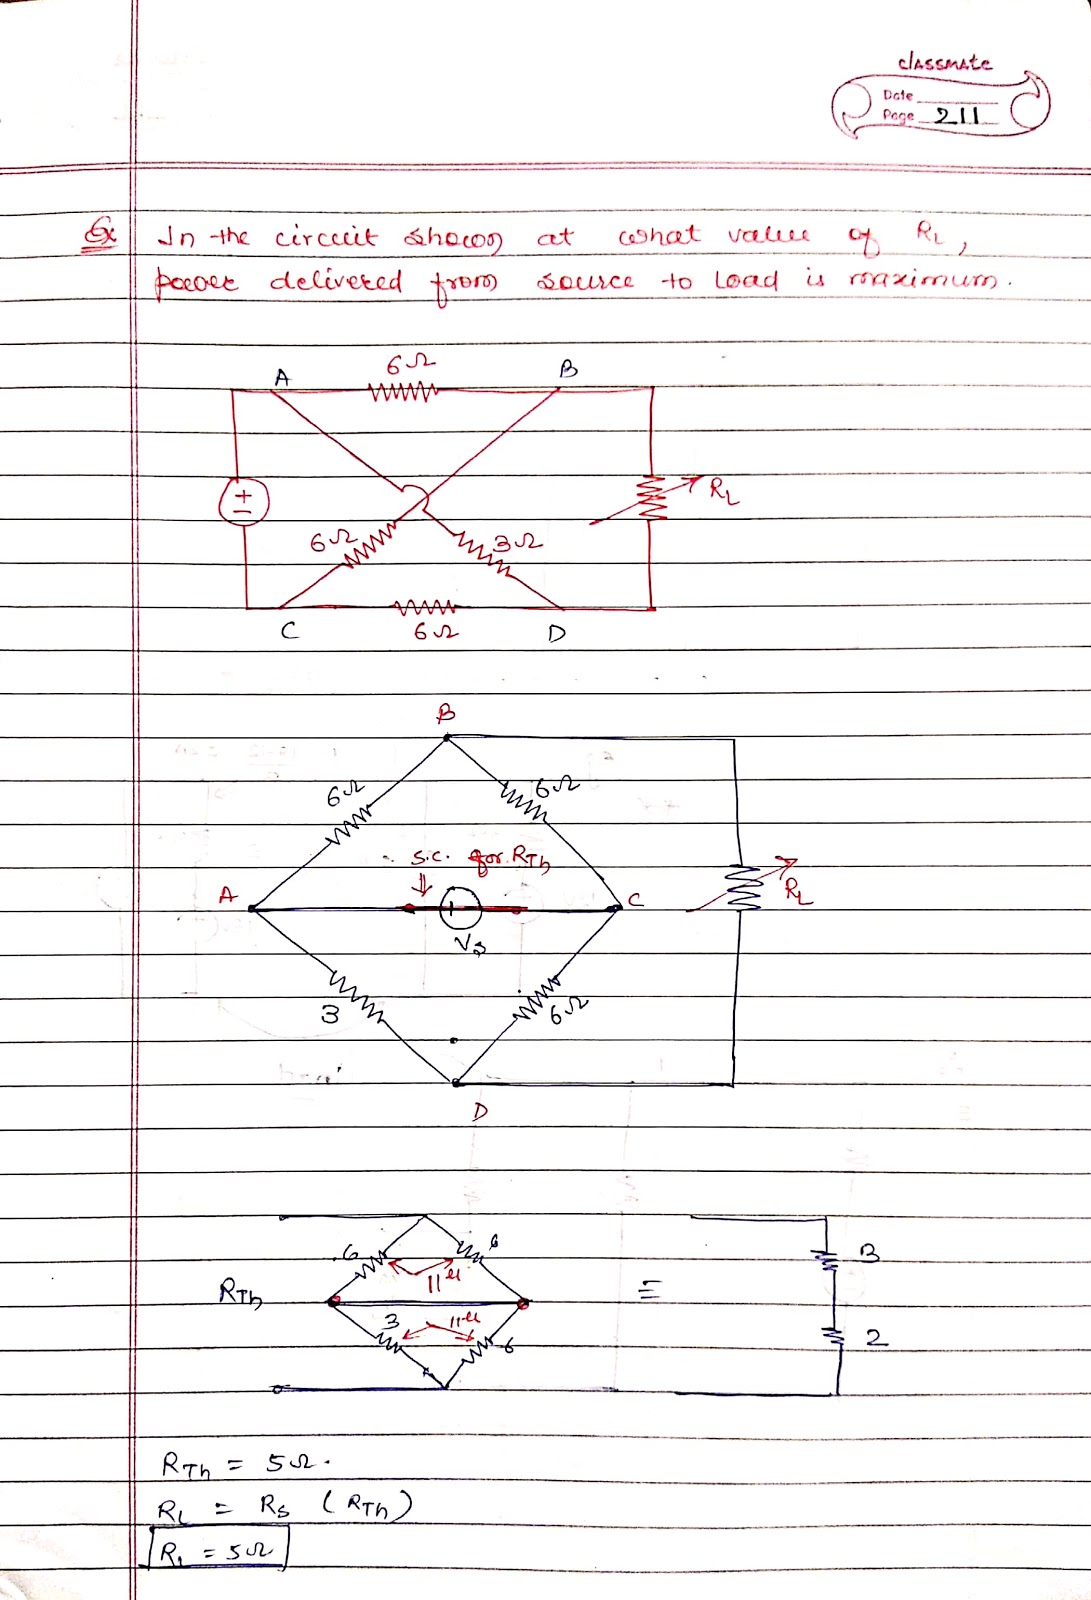 classmate
Date
Page 211
Ex In the circuit shown at what value of RL,
power delivered from source to load is maximum.
A 6Ω B
+
-
RL
6Ω 3Ω
6Ω
C D
B
6Ω 6Ω
S.C. for RTh
A + C RL
Vs
3 6Ω
D
6 6
11el
RTh ≡
3 11el 6
3
2
RTh = 5Ω.
RL = Rs (RTh)
RL = 5Ω